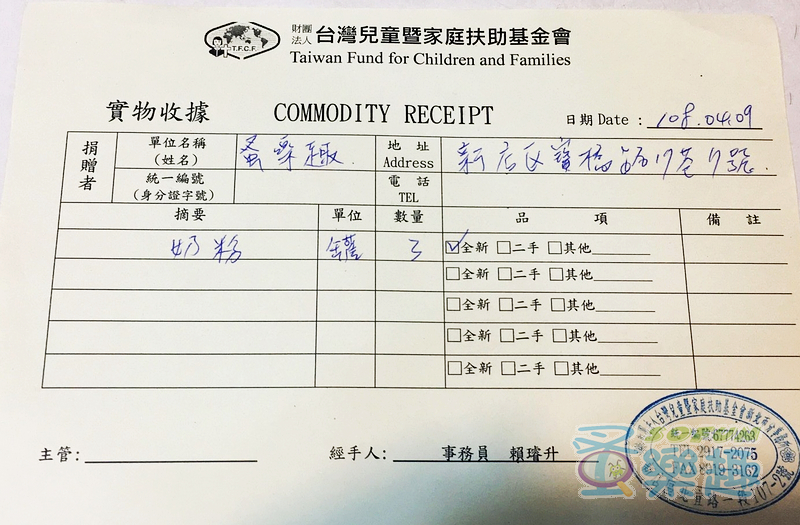 財團法人 台灣兒童暨家庭扶助基金會
T.F.C.F.
Taiwan Fund for Children and Families
實物收據 COMMODITY RECEIPT 日期 Date : 108.04.09
捐贈者 單位名稱(姓名) 蚤樂趣 地址 Address 新店區寶橋路17巷7號
統一編號(身分證字號) 電話 TEL
摘要 單位 數量 品項 備註
奶粉 罐 3 全新 二手 其他
全新 二手 其他
全新 二手 其他
全新 二手 其他
全新 二手 其他
主管: 經手人: 事務員 賴璿升
統一編號:67774263
TEL 2917-2075
FAX 8919-3162
蚤樂趣